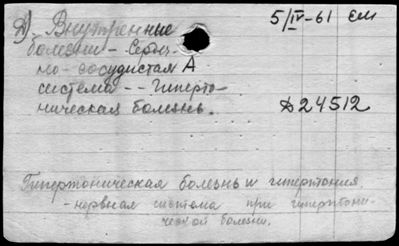 Д). Внутренные 5/IV-61 ем
болезни - Сердеч-
но-сосудистая А
система -- Гиперто-
ническая болезнь. Д24512
Гипертоническая болезнь и гипертония
- нервная система при гипертони-
ческой болезни.